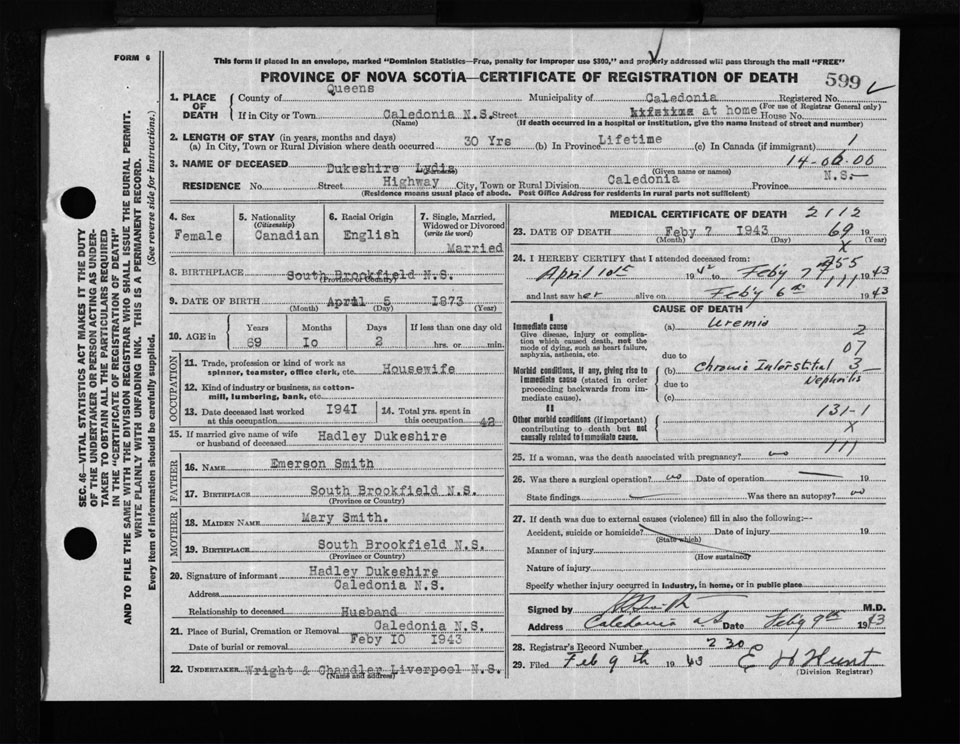 FORM 6
This form if placed in an envelope, marked "Dominion Statistics—Free, penalty for improper use $300," and properly addressed will pass through the mail "FREE"
PROVINCE OF NOVA SCOTIA—CERTIFICATE OF REGISTRATION OF DEATH
599
1. PLACE OF DEATH
County of Queens Municipality of Caledonia Registered No.
(For use of Registrar General only)
If in City or Town Caledonia N.S. Street Lifetime at home House No.
(Name) (If death occurred in a hospital or institution, give the name instead of street and number)
2. LENGTH OF STAY (in years, months and days)
(a) In City, Town or Rural Division where death occurred 30 Yrs (b) In Province Lifetime (c) In Canada (if immigrant) 1
14-06-00
3. NAME OF DECEASED Dukeshire Lydia
(Surname) (Given name or names)
RESIDENCE No. Street Highway City, Town or Rural Division Caledonia Province N.S.
(Residence means usual place of abode. Post Office Address for residents in rural parts not sufficient)
4. Sex
Female
5. Nationality
(Citizenship)
Canadian
6. Racial Origin
English
7. Single, Married, Widowed or Divorced
(write the word)
Married
8. BIRTHPLACE South Brookfield N.S.
(Province or Country)
9. DATE OF BIRTH April 5 1873
(Month) (Day) (Year)
10. AGE in Years Months Days If less than one day old
69 10 2 hrs. or min.
OCCUPATION
11. Trade, profession or kind of work as
spinner, teamster, office clerk, etc. Housewife
12. Kind of industry or business, as cotton-
mill, lumbering, bank, etc.
13. Date deceased last worked at this occupation 1941
14. Total yrs. spent in this occupation 42
15. If married give name of wife or husband of deceased Hadley Dukeshire
FATHER
16. NAME Emerson Smith
17. BIRTHPLACE South Brookfield N.S.
(Province or Country)
MOTHER
18. MAIDEN NAME Mary Smith.
19. BIRTHPLACE South Brookfield N.S.
(Province or Country)
20. Signature of informant Hadley Dukeshire
Address Caledonia N.S.
Relationship to deceased Husband
21. Place of Burial, Cremation or Removal Caledonia N.S.
Date of burial or removal Feby 10 1943
22. UNDERTAKER Wright & Chandler Liverpool N.S.
(Name and address)
MEDICAL CERTIFICATE OF DEATH 2112
23. DATE OF DEATH Feby 7 1943 69 19
(Month) (Day) (Year)
X
24. I HEREBY CERTIFY that I attended deceased from: 955
April 1st 19 42 to Feby 7 1943
111
and last saw her alive on Feby 6th 1943
CAUSE OF DEATH
I
Immediate cause
Give disease, injury or complication which caused death, not the mode of dying, such as heart failure, asphyxia, asthenia, etc.
(a) Uremia 2
due to 07
Morbid conditions, if any, giving rise to immediate cause (stated in order proceeding backwards from immediate cause).
(b) Chronic Interstitial 3
due to Nephritis
(c)
II
Other morbid conditions (if important) contributing to death but not causally related to immediate cause.
131-1
X
111
25. If a woman, was the death associated with pregnancy? no
26. Was there a surgical operation? no Date of operation 19
State findings Was there an autopsy? no
27. If death was due to external causes (violence) fill in also the following:—
Accident, suicide or homicide? Date of injury 19
(State which)
Manner of injury
(How sustained)
Nature of injury
Specify whether injury occurred in industry, in home, or in public place
Signed by Smith M.D.
Address Caledonia NS Date Feby 9th 1943
28. Registrar's Record Number 230
29. Filed Feb 9th 19 43 E H Hunt
(Division Registrar)
SEC. 46—VITAL STATISTICS ACT MAKES IT THE DUTY
OF THE UNDERTAKER OR PERSON ACTING AS UNDER-
TAKER TO OBTAIN ALL THE PARTICULARS REQUIRED
IN THE "CERTIFICATE OF REGISTRATION OF DEATH"
AND TO FILE THE SAME WITH THE DIVISION REGISTRAR WHO SHALL ISSUE THE BURIAL PERMIT.
WRITE PLAINLY WITH UNFADING INK. THIS IS A PERMANENT RECORD.
Every item of information should be carefully supplied. (See reverse side for instructions.)